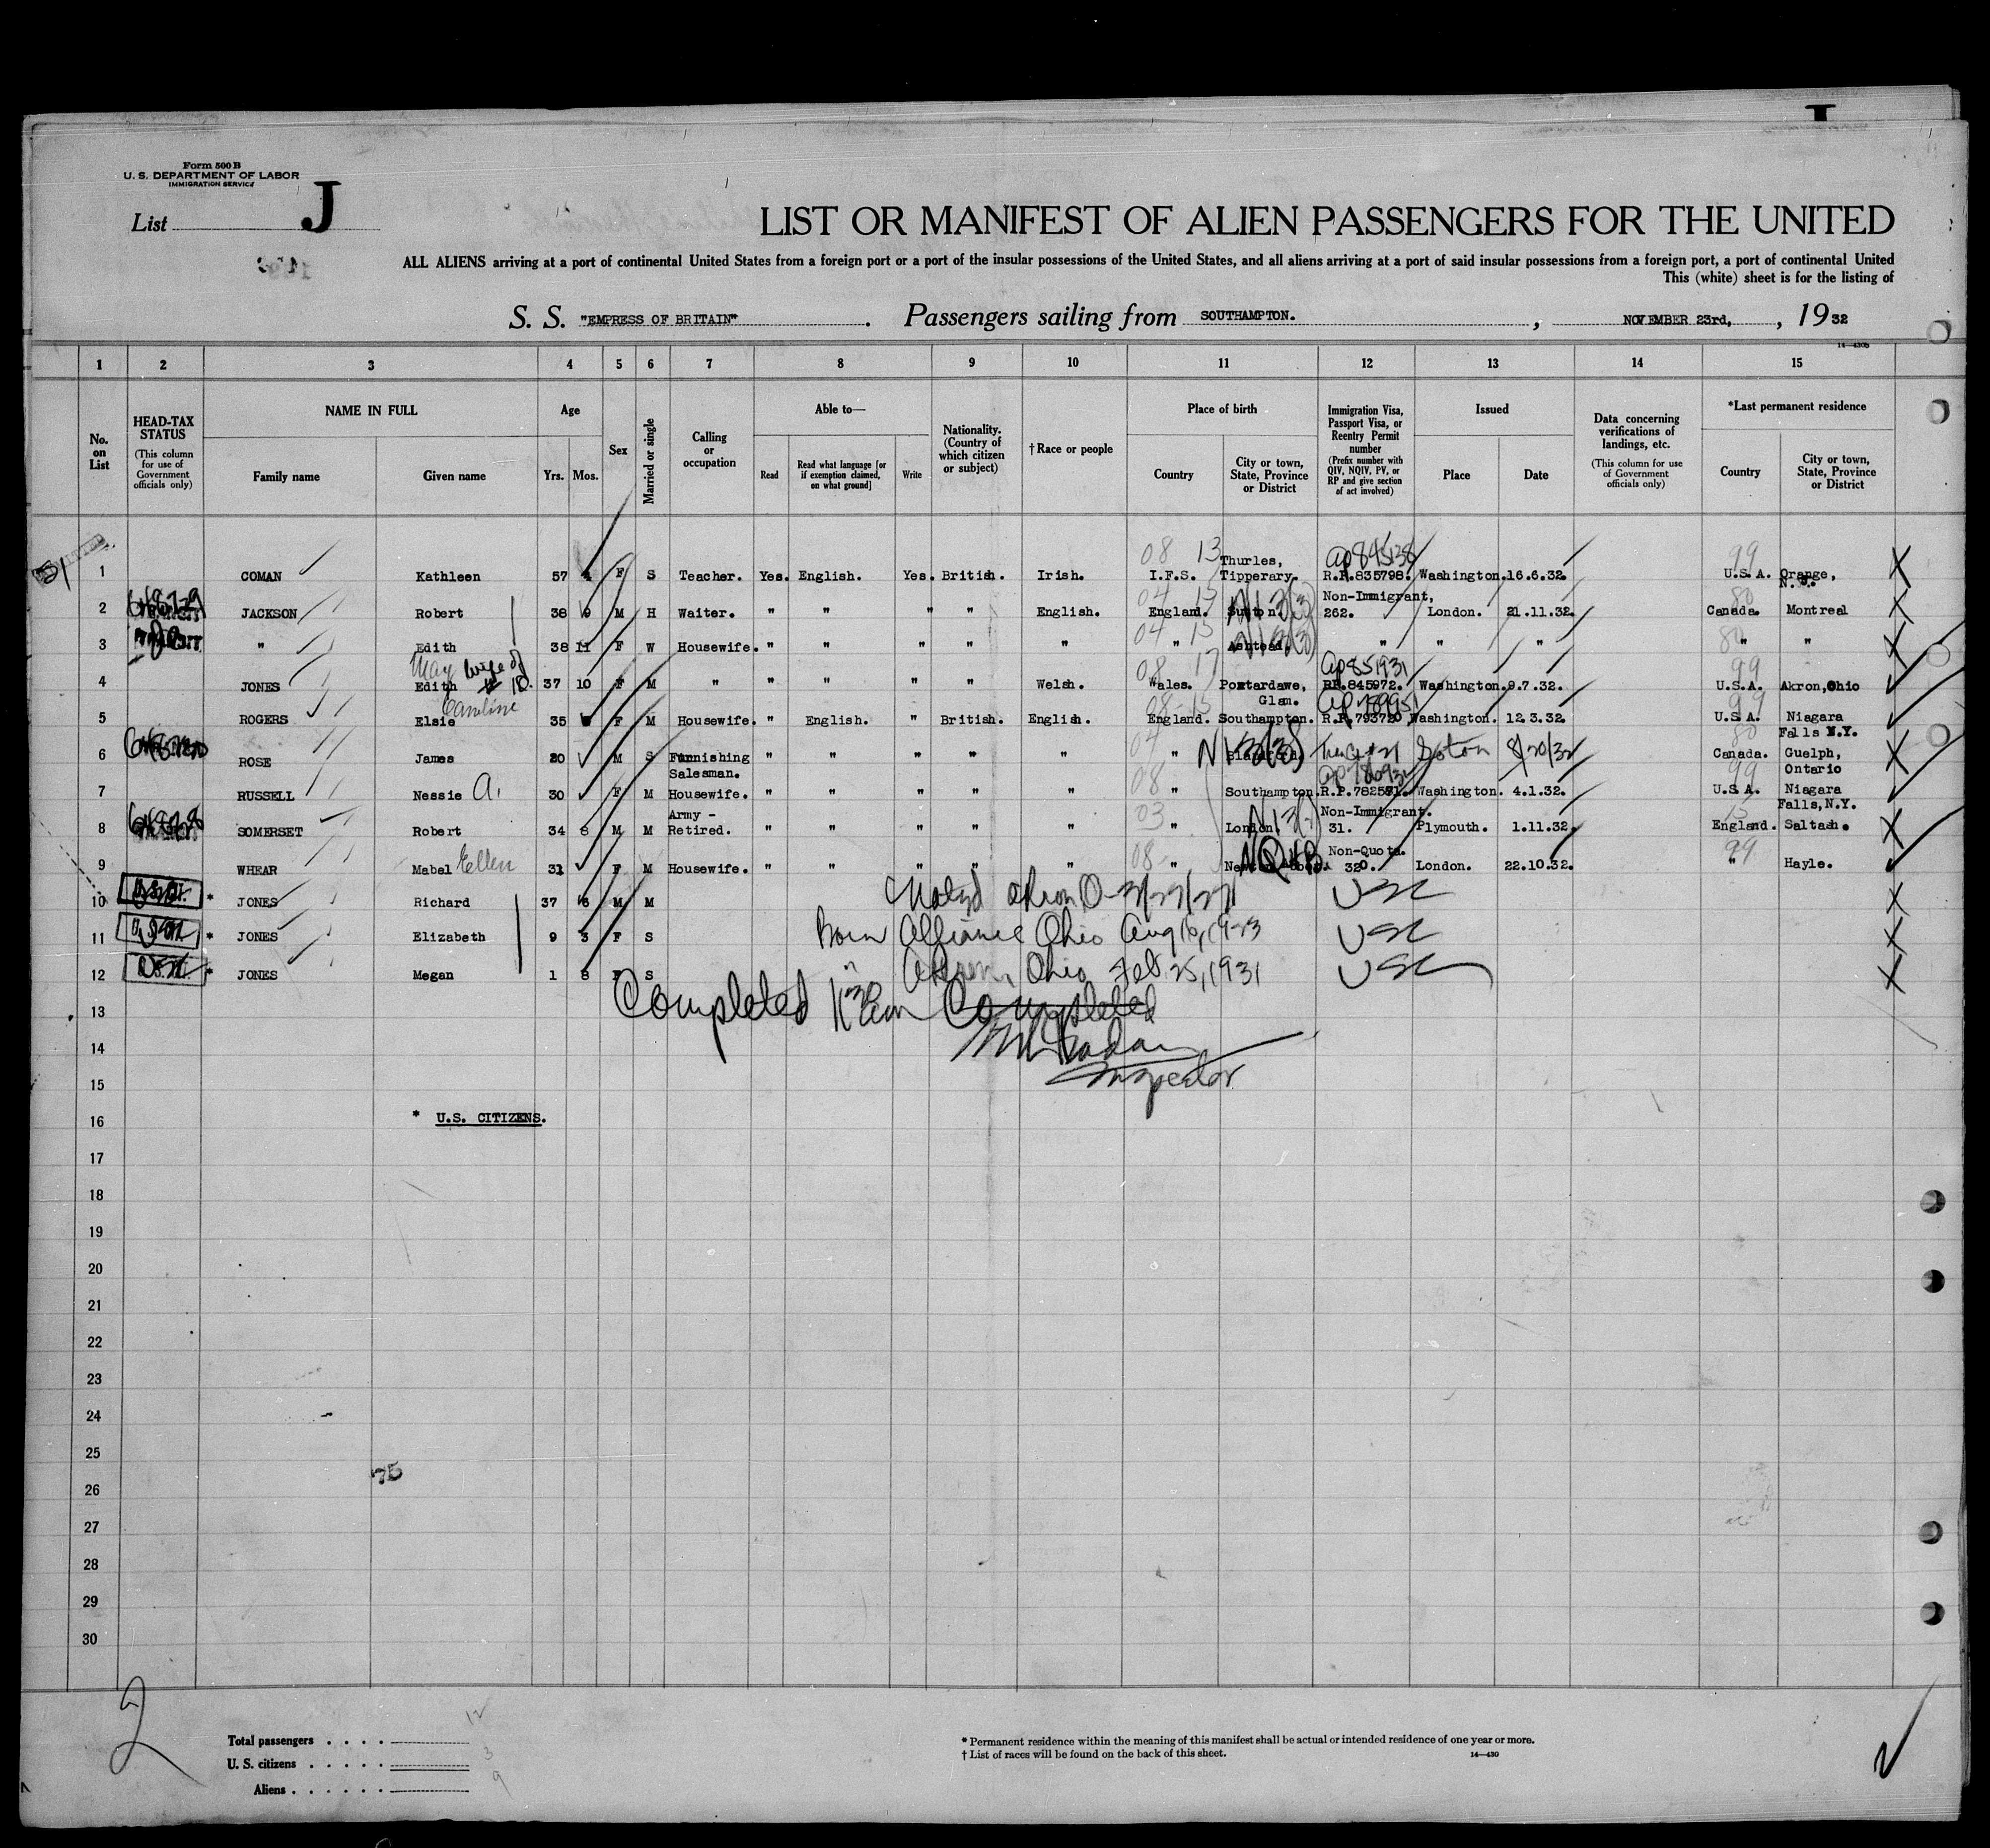 Form 500 B
U. S. DEPARTMENT OF LABOR
IMMIGRATION SERVICE
List J
LIST OR MANIFEST OF ALIEN PASSENGERS FOR THE UNITED
ALL ALIENS arriving at a port of continental United States from a foreign port or a port of the insular possessions of the United States, and all aliens arriving at a port of said insular possessions from a foreign port, a port of continental United
This (white) sheet is for the listing of
S. S. "EMPRESS OF BRITAIN" . Passengers sailing from SOUTHAMPTON. , NOVEMBER 23rd, , 1932
1 2 3 4 5 6 7 8 9 10 11 12 13 14 15
No. on List
HEAD-TAX STATUS (This column for use of Government officials only)
NAME IN FULL
Family name Given name
Age
Yrs. Mos.
Sex
Married or single
Calling or occupation
Able to—
Read Read what language [or if exemption claimed, on what ground] Write
Nationality. (Country of which citizen or subject)
† Race or people
Place of birth
Country City or town, State, Province or District
Immigration Visa, Passport Visa, or Reentry Permit number (Prefix number with QIV, NQIV, PV, or RP and give section of act involved)
Issued
Place Date
Data concerning verifications of landings, etc. (This column for use of Government officials only)
*Last permanent residence
Country City or town, State, Province or District
1 COMAN Kathleen 57 4 F S Teacher. Yes. English. Yes. British. Irish. 08 13 I.F.S. Thurles, Tipperary. R.P.835798. Washington. 16.6.32. 99 U.S.A. Orange, N.J.
2 JACKSON Robert 38 9 M H Waiter. " " " " English. 04 15 England. Non-Immigrant, 262. London. 21.11.32. 80 Canada. Montreal
3 " Edith 38 11 F W Housewife. " " " " " 04 15 " Ashtead. " " " 80 " "
4 JONES Edith May wife of # 10. 37 10 F M " " " " " Welsh. 08 17 Wales. Pontardawe, Glam. ap851931 RP.845972. Washington. 9.7.32. 99 U.S.A. Akron, Ohio
5 ROGERS Elsie Caroline 35 F M Housewife. " English. " British. English. 08-15 England. Southampton. R.P.79372 Washington. 12.3.32. 99 U.S.A. Niagara Falls N.Y.
6 ROSE James 20 M S Furnishing Salesman. " " " " " 04 " Soton 8/20/32 80 Canada. Guelph, Ontario
7 RUSSELL Nessie A. 30 F M Housewife. " " " " " 08 " Southampton. R.P.782581. Washington. 4.1.32. 99 U.S.A. Niagara Falls, N.Y.
8 SOMERSET Robert 34 8 M M Army - Retired. " " " " " 03 " London. Non-Immigrant. 31. Plymouth. 1.11.32. 15 England. Saltash.
9 WHEAR Mabel Ellen 31 F M Housewife. " " " " " 08 " Non-Quota. 320. London. 22.10.32. 99 " Hayle.
10 * JONES Richard 37 6 M M Natzd Akron, O- USC
11 * JONES Elizabeth 9 3 F S Born Alliance Ohio Aug 16, 1923 USC
12 * JONES Megan 1 8 F S " Akron, Ohio Feb. 25, 1931 USC
13 Completed Completed
14
15 Inspector
16 * U.S. CITIZENS.
17
18
19
20
21
22
23
24
25
75
26
27
28
29
30
2
Total passengers . . . . 12
U. S. citizens . . . . . 3
Aliens . . . . . . 9
* Permanent residence within the meaning of this manifest shall be actual or intended residence of one year or more.
† List of races will be found on the back of this sheet. 14—430